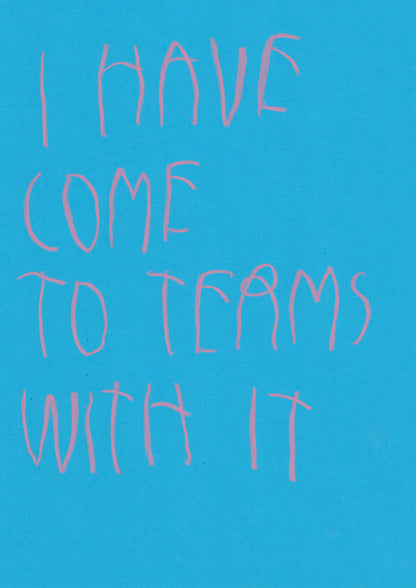 I HAVE
COME
TO TERMS
WITH IT